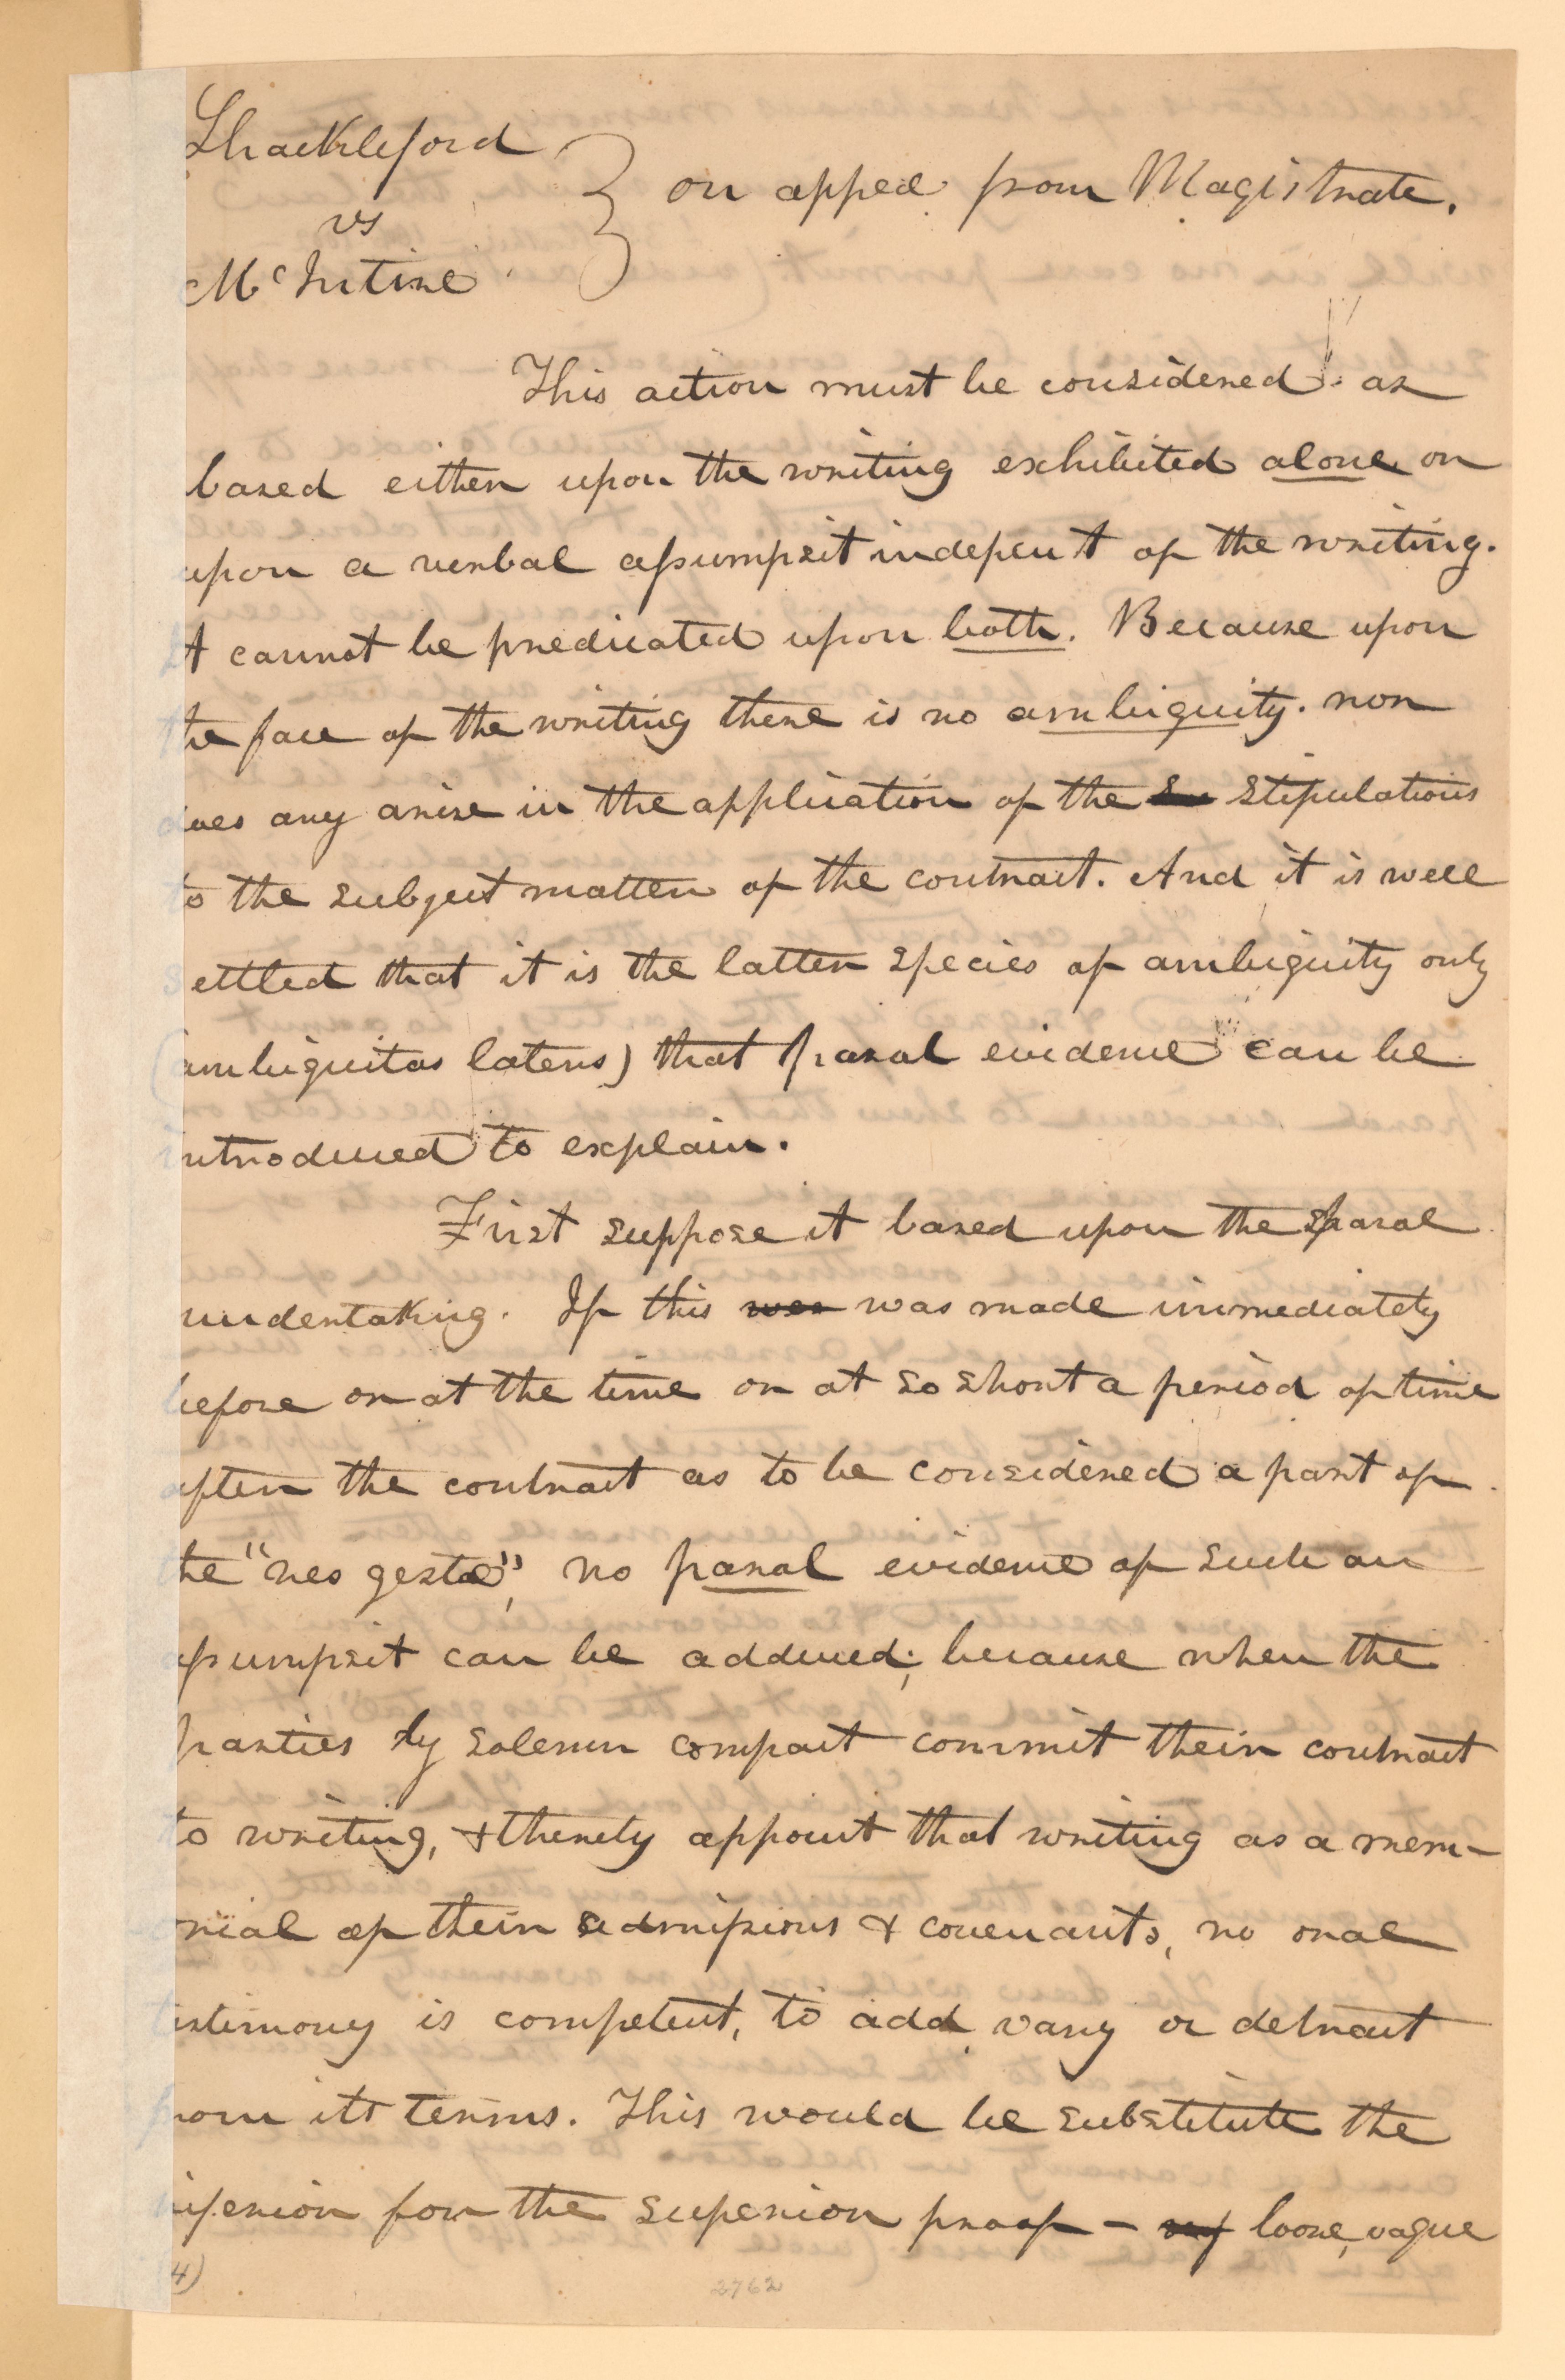 Shackleford
vs } on appeal from Magistrate.
McIntire
This action must be considered as
based either upon the writing exhibited alone or
upon a verbal assumpsit indepent of the writing.
It cannot be predicated upon both. Because upon
the face of the writing there is no ambiguity. nor
does any arise in the application of the stipulations
to the subject matter of the contract. And it is well
settled that it is the latter species of ambiguity only
(ambiguitas latens) that parol evidence can be
introduced to explain.
First suppose it based upon the parol
undertaking. If this was made immediately
before or at the time or at so short a period of time
after the contract as to be considered a part of
the "res gestae", no parol evidence of such an
assumpsit can be adduced; because when the
parties by solemn compact commit their contract
to writing, & thereby appoint that writing as a mem-
orial of their admissions & covenants, no oral
testimony is competent, to add, vary or detract
from its terms. This would be substitute the
inferior for the superior proof - loose, vague
4)
2762